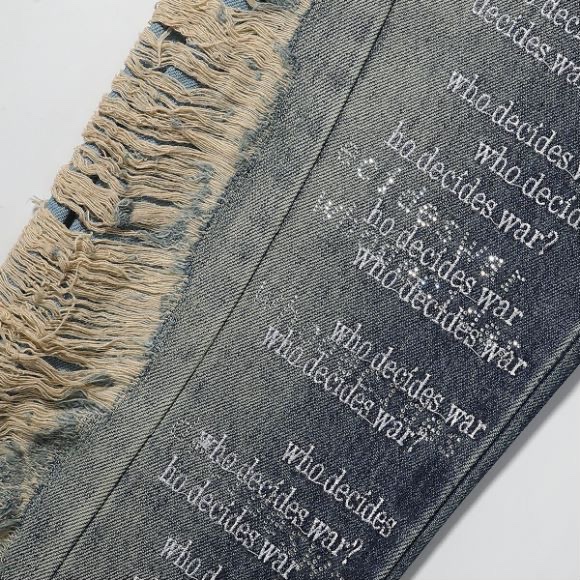 decides
decides.war
who.decides
who.decides
ho.decides.war?
ho.decides.war
who.decides.war
who.decides.war
who.decides.war?
who.decides
who.decides.war?
ho.decides.war
who.decides
who.decides